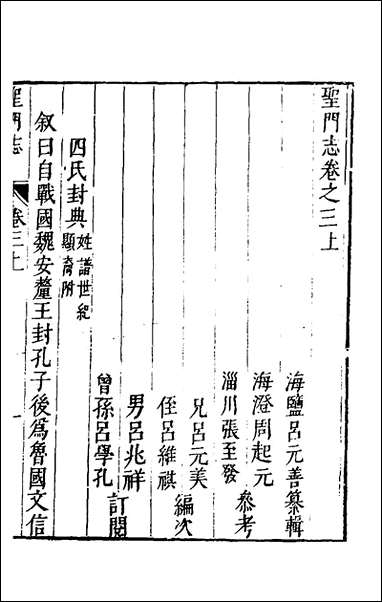 聖門志卷之三上
海鹽呂元善纂輯
海澄周起元
淄川張至發
叅考
兄呂元美
侄呂維祺
編次
男呂兆祥
曾孫呂學孔
訂閱
四氏封典
姓譜世紀
顯裔附
叙曰自戰國魏安釐王封孔子後爲魯國文信
聖門志
卷三上
一